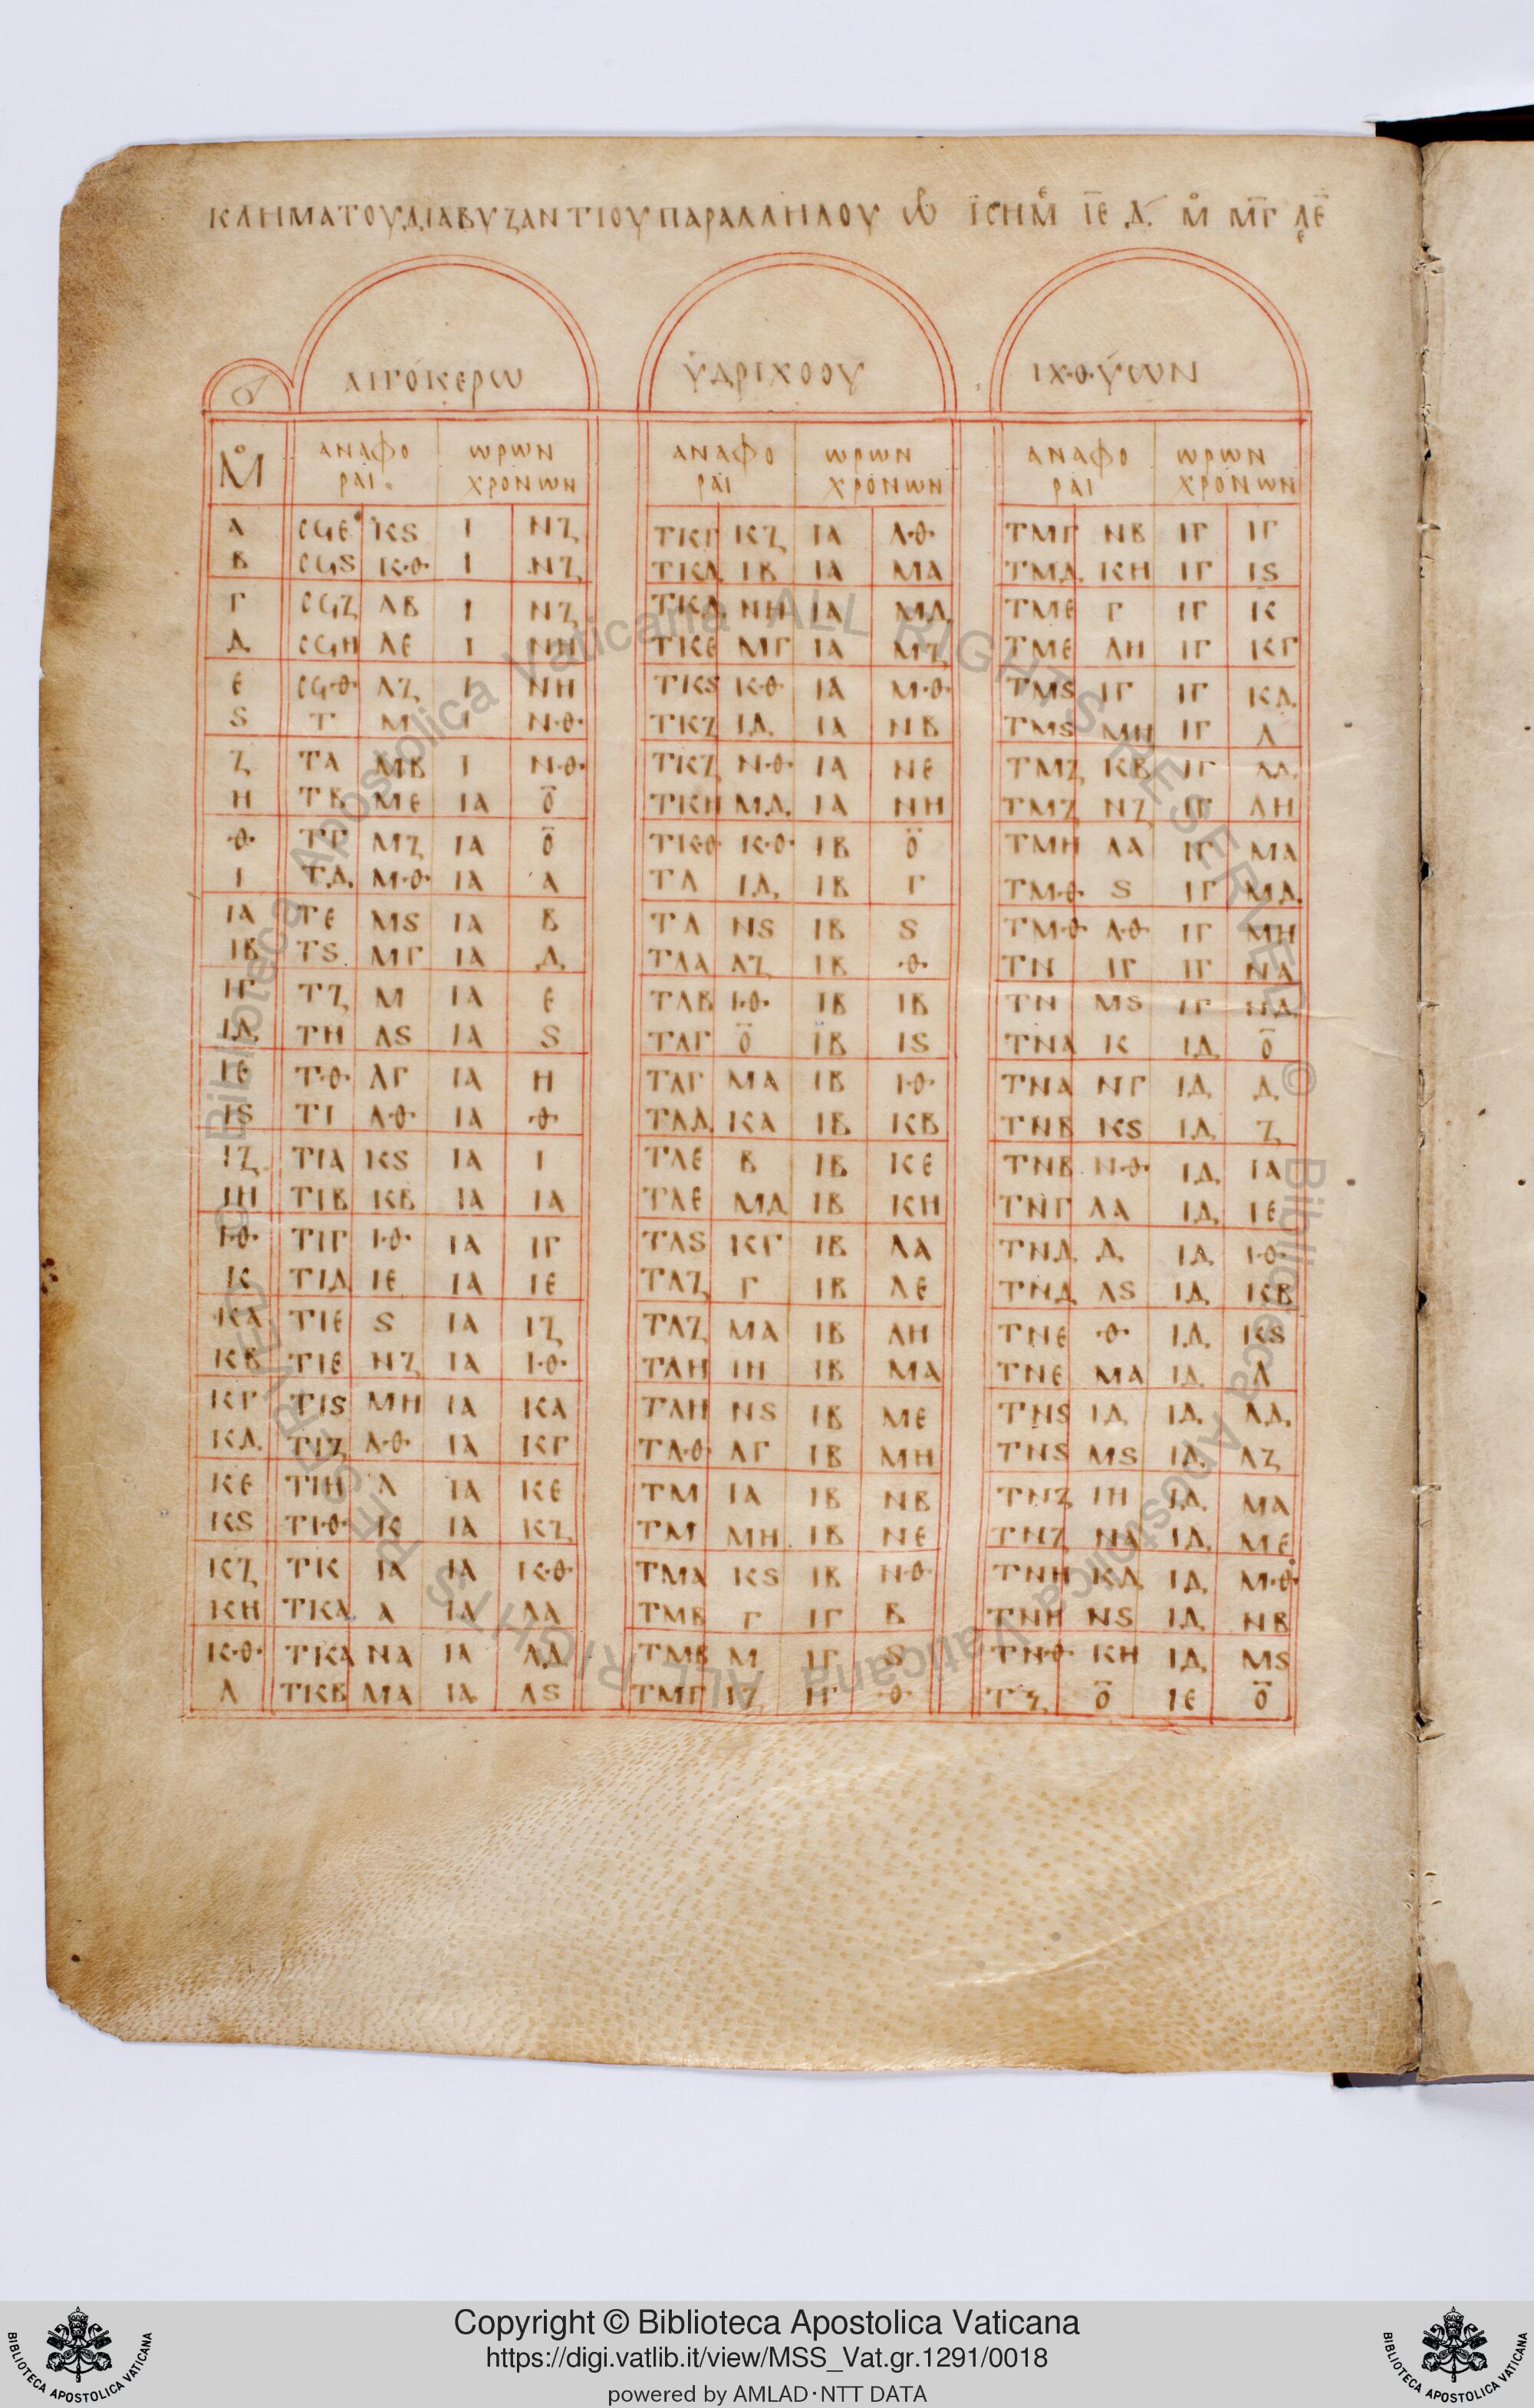 ΚΛΗΜΑΤΟΥΔΙΑΒΥΖΑΝΤΙΟΥΠΑΡΑΛΛΗΛΟΥ ΙΕ Δ ΜΓ
ΑΙΓΟΚΕΡω ΫΔΡΙΧΟΟΥ ΙΧΘΥωΝ
Μ ΑΝΑΦΟ ωΡωΝ ΑΝΑΦΟ ωΡωΝ ΑΝΑΦΟ ωΡωΝ
ΡΑΙ ΧΡΟΝωΝ ΡΑΙ ΧΡΟΝωΝ ΡΑΙ ΧΡΟΝωΝ
Α СϤΕ ΚS Ι ΝΖ ΤΚΓ ΚΖ ΙΑ ΛΘ ΤΜΓ ΝΒ ΙΓ ΙΓ
Β СϤS ΚΘ Ι ΝΖ ΤΚΔ ΙΒ ΙΑ ΜΑ ΤΜΔ ΚΗ ΙΓ ΙS
Γ СϤΖ ΛΒ Ι ΝΖ ΤΚΔ ΝΗ ΙΑ ΜΔ ΤΜΕ Γ ΙΓ Κ
Δ СϤΗ ΛΕ Ι ΝΗ ΤΚΕ ΜΓ ΙΑ ΜΖ ΤΜΕ ΛΗ ΙΓ ΚΓ
Ε СϤΘ ΛΖ Ι ΝΗ ΤΚS ΚΘ ΙΑ ΜΘ ΤΜS ΙΓ ΙΓ ΚΔ
S Τ Μ Ι ΝΘ ΤΚΖ ΙΔ ΙΑ ΝΒ ΤΜS ΜΗ ΙΓ Λ
Ζ ΤΑ ΜΒ Ι ΝΘ ΤΚΖ ΝΘ ΙΑ ΝΕ ΤΜΖ ΚΒ ΙΓ ΛΔ
Η ΤΒ ΜΕ ΙΑ Ο ΤΚΗ ΜΔ ΙΑ ΝΗ ΤΜΖ ΝΖ ΙΓ ΛΗ
Θ ΤΓ ΜΖ ΙΑ Ο ΤΚΘ ΚΘ ΙΒ Ο ΤΜΗ ΛΑ ΙΓ ΜΑ
Ι ΤΔ ΜΘ ΙΑ Α ΤΛ ΙΔ ΙΒ Γ ΤΜΘ S ΙΓ ΜΔ
ΙΑ ΤΕ ΜS ΙΑ Β ΤΛ ΝS ΙΒ S ΤΜΘ ΛΘ ΙΓ ΜΗ
ΙΒ ΤS ΜΓ ΙΑ Δ ΤΛΑ ΛΖ ΙΒ Θ ΤΝ ΙΓ ΙΓ ΝΑ
ΙΓ ΤΖ Μ ΙΑ Ε ΤΛΒ ΙΘ ΙΒ ΙΒ ΤΝ ΜS ΙΓ ΝΔ
ΙΔ ΤΗ ΛS ΙΑ S ΤΛΓ Ο ΙΒ ΙS ΤΝΑ Κ ΙΔ Ο
ΙΕ ΤΘ ΛΓ ΙΑ Η ΤΛΓ ΜΑ ΙΒ ΙΘ ΤΝΑ ΝΓ ΙΔ Δ
ΙS ΤΙ ΛΘ ΙΑ Θ ΤΛΔ ΚΑ ΙΒ ΚΒ ΤΝΒ ΚS ΙΔ Ζ
ΙΖ ΤΙΑ ΚS ΙΑ Ι ΤΛΕ Β ΙΒ ΚΕ ΤΝΒ ΝΘ ΙΔ ΙΑ
ΙΗ ΤΙΒ ΚΒ ΙΑ ΙΑ ΤΛΕ ΜΔ ΙΒ ΚΗ ΤΝΓ ΛΑ ΙΔ ΙΕ
ΙΘ ΤΙΓ ΙΘ ΙΑ ΙΓ ΤΛS ΚΓ ΙΒ ΛΑ ΤΝΔ Δ ΙΔ ΙΘ
Κ ΤΙΔ ΙΕ ΙΑ ΙΕ ΤΛΖ Γ ΙΒ ΛΕ ΤΝΔ ΛS ΙΔ ΚΒ
ΚΑ ΤΙΕ S ΙΑ ΙΖ ΤΛΖ ΜΑ ΙΒ ΛΗ ΤΝΕ Θ ΙΔ ΚS
ΚΒ ΤΙΕ ΝΖ ΙΑ ΙΘ ΤΛΗ ΙΗ ΙΒ ΜΑ ΤΝΕ ΜΑ ΙΔ Λ
ΚΓ ΤΙS ΜΗ ΙΑ ΚΑ ΤΛΗ ΝS ΙΒ ΜΕ ΤΝS ΙΔ ΙΔ ΛΔ
ΚΔ ΤΙΖ ΛΘ ΙΑ ΚΓ ΤΛΘ ΛΓ ΙΒ ΜΗ ΤΝS ΜS ΙΔ ΛΖ
ΚΕ ΤΙΗ Λ ΙΑ ΚΕ ΤΜ ΙΑ ΙΒ ΝΒ ΤΝΖ ΙΗ ΙΔ ΜΑ
ΚS ΤΙΘ Κ ΙΑ ΚΖ ΤΜ ΜΗ ΙΒ ΝΕ ΤΝΖ ΝΑ ΙΔ ΜΕ
ΚΖ ΤΚ ΙΑ ΙΑ ΚΘ ΤΜΑ ΚS ΙΒ ΝΘ ΤΝΗ ΚΔ ΙΔ ΜΘ
ΚΗ ΤΚΑ Α ΙΑ ΛΑ ΤΜΒ Γ ΙΓ Β ΤΝΗ ΝS ΙΔ ΝΒ
ΚΘ ΤΚΑ ΝΑ ΙΑ ΛΔ ΤΜΒ Μ ΙΓ S ΤΝΘ ΚΗ ΙΔ ΜS
Λ ΤΚΒ ΜΑ ΙΑ ΛS ΤΜΓ ΙΖ ΙΓ Θ ΤΞ Ο ΙΕ Ο
© Biblioteca Apostolica Vaticana ALL RIGHTS RESERVED
© Biblioteca Apostolica Vaticana ALL RIGHTS RESERVED
Copyright © Biblioteca Apostolica Vaticana
https://digi.vatlib.it/view/MSS_Vat.gr.1291/0018
powered by AMLAD·NTT DATA
BIBLIOTECA APOSTOLICA VATICANA
BIBLIOTECA APOSTOLICA VATICANA